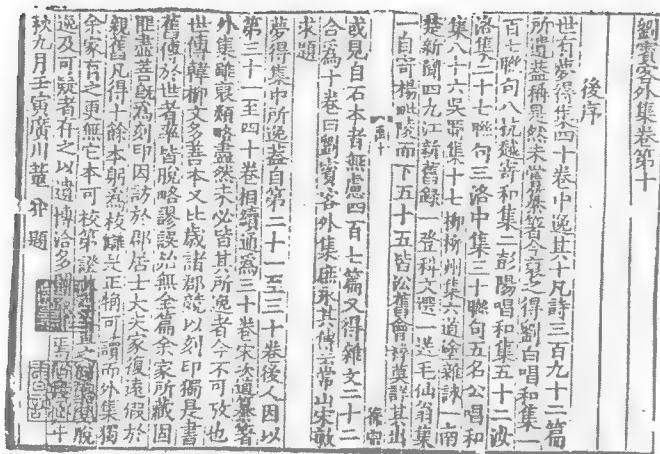 劉賓客外集卷第十
後序
世有夢得集四十卷中逸其十凡詩三百九十二篇
所遺蓋稱是然未嘗纂著今裒之得劉白唱和集一
百七聯句八杭越寄和集二彭陽唱和集五十二汝
洛集二十七聯句三洛中集三十聯句五名公唱和
集八十六吳蜀集十七柳柳州集六道塗雜詠一南
楚新聞四九江新舊錄一登科文選一送毛仙翁集
一自寄楊毗陵而下五十五皆沿舊會粹莫詳其出
或見自石本者無慮四百七篇又得雜文二十二
合為十卷曰劉賓客外集庶永其傳云常山宋敏
求題
夢得集中所逸蓋自第二十一至三十卷後人因以
第三十一至四十卷相續通為三十卷宋次道纂著
外集雖裒類略盡然未必皆其所逸者今不可攷也
世傳韓柳文多善本又比歲諸郡競以刻印獨是書
舊傳於世者率皆脫略謬誤殆無全篇余家所藏固
匪盡善既為刻印因訪於郡居士大夫家復遠假於
親舊凡得十餘本躬為校讎是正稍可讀而外集獨
余家有之更無它本可校第證之脫
逸及可疑者存之以遺博洽多聞午
秋九月壬寅廣川董棻題